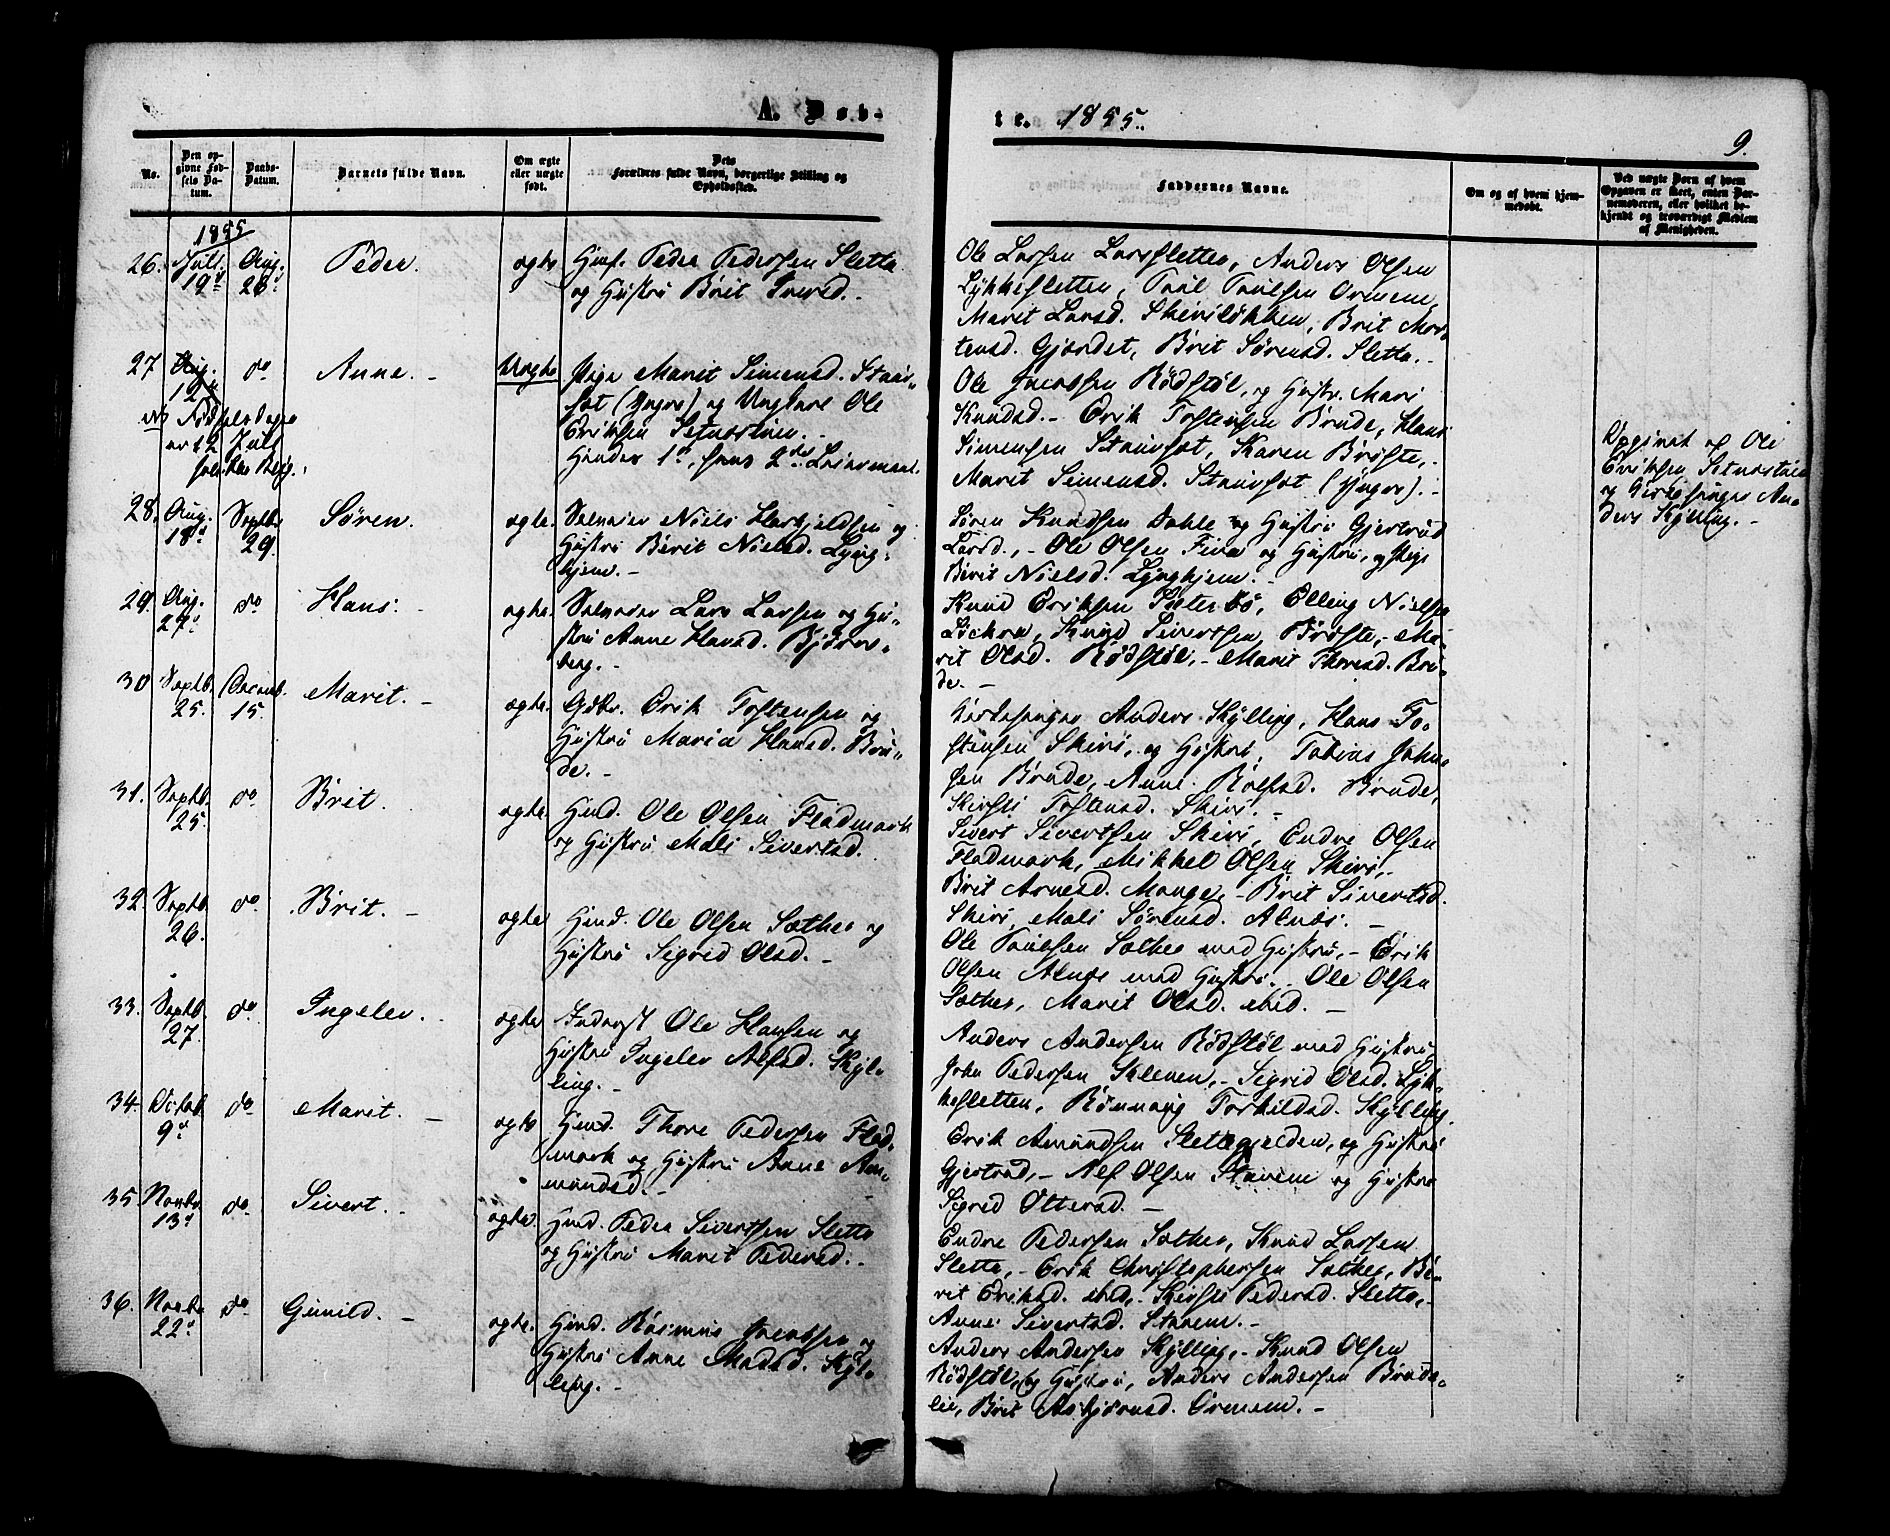 A. Døb-
te. 1855.
9.
No.
Den op-
givne Fød-
sels Da-
tum.
Daabs-
Datum.
Barnets fulde Navn.
Om ægte
eller uægte
født.
Dets
Forældres fulde Navn, borgerlige Stilling og
Opholdssted.
Faddernes Navne.
Om og af hvem hjem-
medøbt.
Ved uægte Børn af hvem
Opgaven er skeet, enten Bar-
nemoderen, eller hvilket be-
kjendt og troværdigt Medlem
af Menigheden.
1855
26. Juli 19d Aug. 26d Peder. ægte Peder Pedersen Sletta
og Hustru Brit Iversd.
Ole Larsen Larssletten, Anders Olsen
Lykkesletten, Poul Poulsen Ormem,
Marit Larsd. Skiriløkken, Brit Mor-
tensd. Gjerdet, Brit Sørensd. Sletta.
27 Aug. 12 do Anne. Uægte Pige Marit Simensd. Stavs-
set (Yngre) og Ungkarl Ole
Eriksen
Hendes 1st, hans 2det Leiermaal.
NB Fødselsdagen
er 12 Juli
Ole Jacobsen Rødstøl, og Hustru Mari
Knudsd. - Erik Tostensen Brude, Hans
Simensen, Karen Brøste,
Marit Simensd. (Yngre).
Opgivet af Ole
Eriksen
og Kirkesanger An-
ders Kylling.
28. Aug. 18d Septb. 29. Søren. ægte. Selveier Niels Herkjeldsen og
Hustru Berit Nielsd. Lyng-
hjem.
Søren Knudsen Dahle og Hustru Gjertrud
Larsd., - Ole Olsen Fiva og Hustru, og Pige
Berit Nielsd. Lynghjem.
29. Aug. 27d do Hans. ægte. Selveier Lars Larsen og Hu-
stru Anne Hansd. Bjørne-
berg.
Knud Eriksen Sæterbø, Elling Nielsen
Knud Sivertsen Brøste, - Ma-
rit Olsd. Rødstøl, - Marit Thoresd. Bru-
de.
30 Septb. 25. Decemb. 15. Marit. ægte. Gdbr. Erik Tostensen og
Hustru Maria Hansd. Bru-
de.
Kirkesanger Anders Kylling, Hans To-
stensen Skiri, og Hustru, Tobias John-
sen Brude, Anne Rolfsd. Brude,
Kirsti Tostensd. Skiri.
31. Septb. 25. do Brit. ægte. Gmd. Ole Olsen Fladmark
og Hustru Mali Sivertsd.
Sivert Sivertsen Skiri, Endre Olsen
Fladmark, Mikkel Olsen Skiri,
Brit Arnesd. Monge, - Brit Sivertsd.
Skiri, Mali Sørensd. Alnes.
32. Septb. 26. do Brit. ægte Gmd. Ole Olsen Sæther og
Hustru Sigrid Olsd.
Ole Poulsen Sæther med Hustru, - Erik
Olsen Alnes med Hustru. Ole Olsen
Sæther, Marit Olsd. ibid.
33. Septb. 27. do Ingeler. ægte Inderst Ole Hansen og
Hustru Ingeler Alfsd. Kyl-
ling.
Anders Andersen Rødstøl med Hustru,
John Pedersen Kleven, - Sigrid Olsd. Lyk-
kesletten, Rønnaug Torkildsd. Kylling.
34. Octob. 9d do Marit. ægte Gmd. Thore Pedersen Flad-
mark og Hustru Anne Am-
mundsd.
Erik Amundsen Slettegjelden, og Hustru
Gjertrud, - Alf Olsen Stavem og Hustru
Sigrid Ottersd.
35. Novbr. 13d do Sivert. ægte. Gmd. Peder Sivertsen Sletta
og Hustru Marit Pedersd.
Endre Pedersen Sæther, Knud Larsen
Sletta, - Erik Christophersen Sæther, Be-
rit Eriksd. ibid, - Kirsti Pedersd. Sletta, -
Anne Sivertsd. Stavem.
36. Novbr. 22d do Gunild. ægte. Gmd. Rasmus Jacobsen og
Hustru Anne Madsd. Kyl-
ling.
Anders Andersen Kylling, - Knud Olsen
Rødstøl, og Hustru, Anders Andersen Brude-
lie, Brit Asbjørnsd. Ormem.